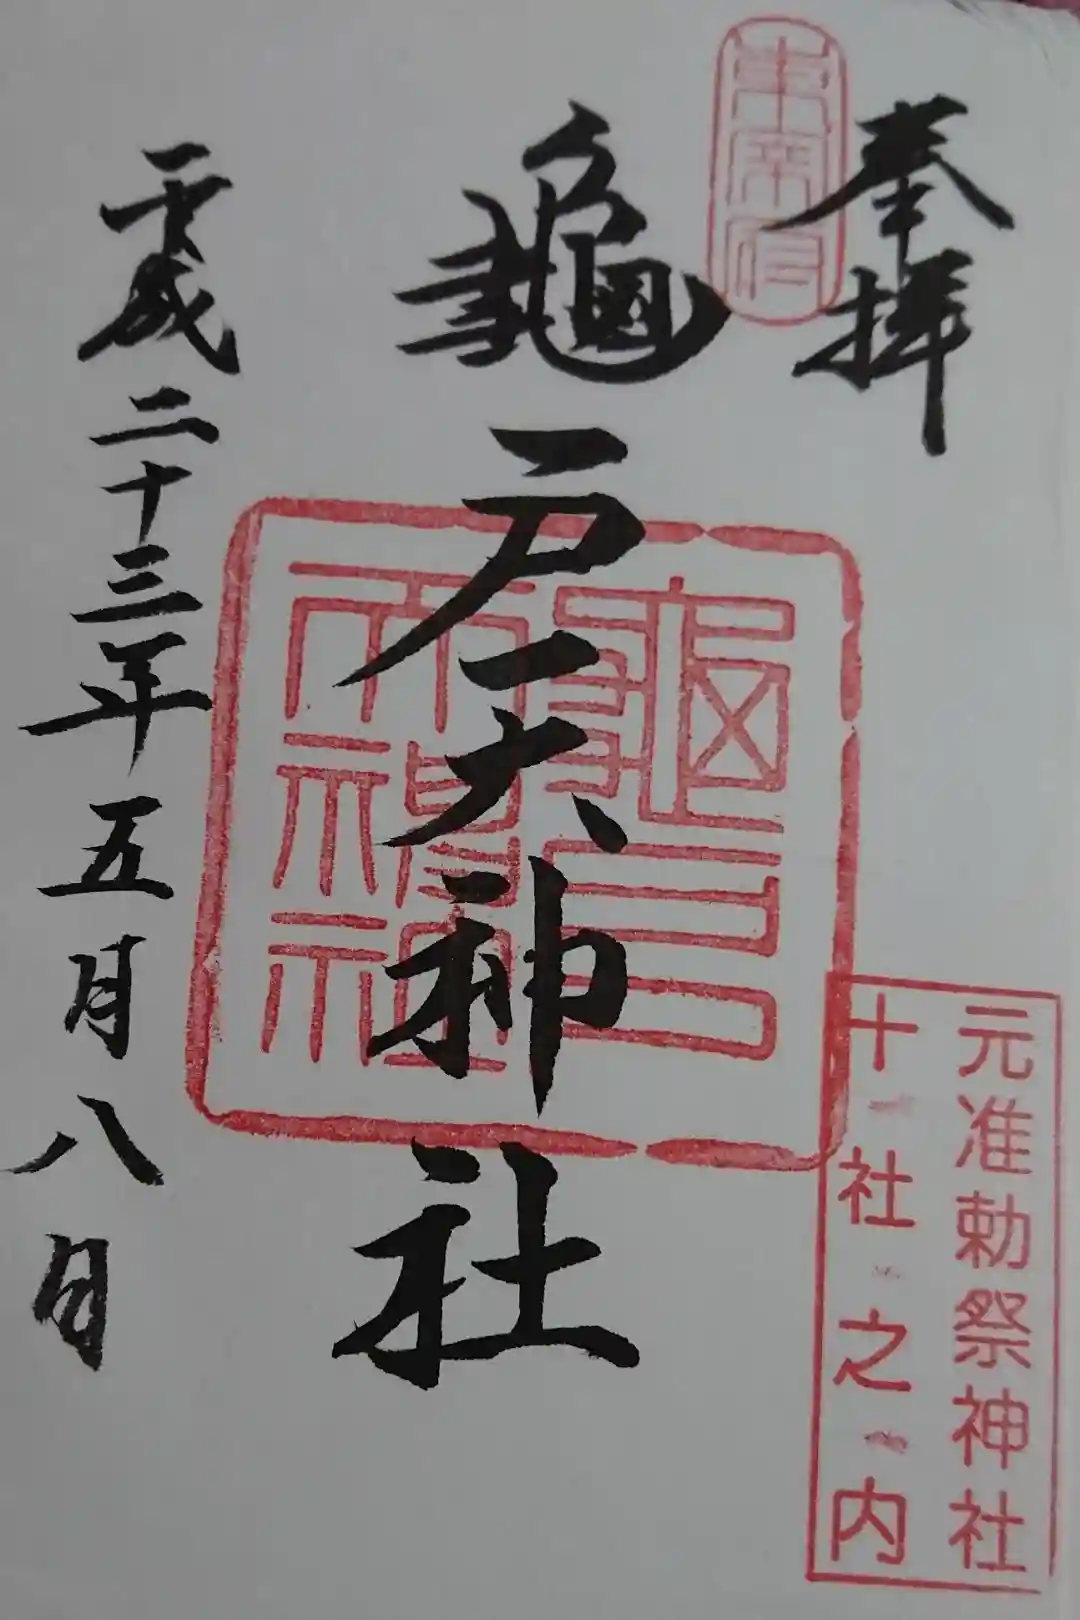 奉拝
龜戸天神社
平成二十三年五月八日
元准勅祭神社
十社之内